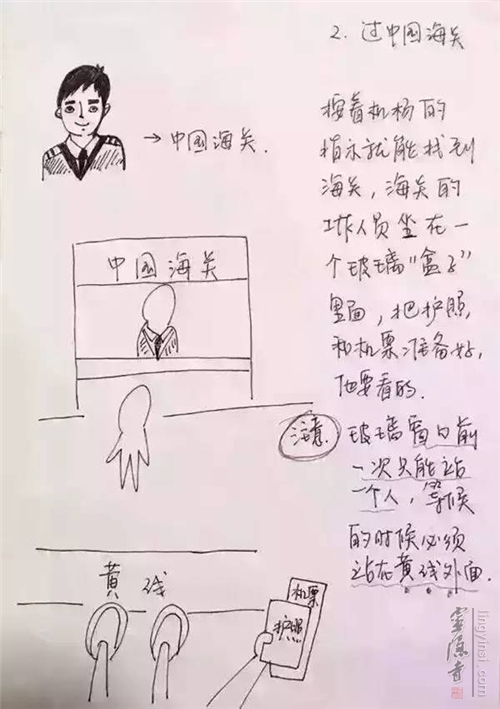 2. 过中国海关
→中国海关.
按着机场的
指示就能找到
海关，海关的
工作人员坐在一
个玻璃“盒子”
里面，把护照
和机票准备好，
他要看的.
中国海关
注意 玻璃窗口前
一次只能站
一个人，等候
的时候必须
站在黄线外面.
黄线
机票
护照
lingyinsi.com